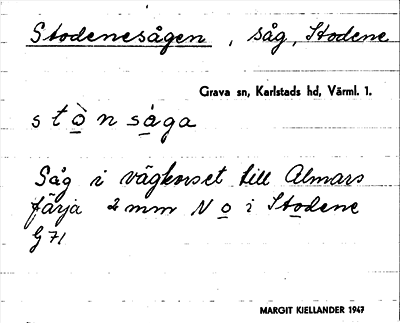 Stodenesågen, såg, Stodene
Grava sn, Karlstads hd, Värml. 1.
stò̱nså̱ga
Såg i vägkorset till Almars
färja 2 mm N o̱ i Sto̱dene
G 71
MARGIT KIELLANDER 1947